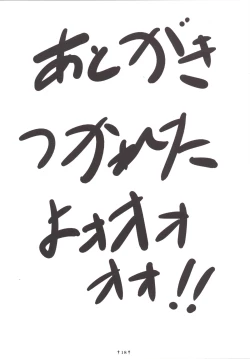 あとがき
つかれた
よォオオ
オオ!!